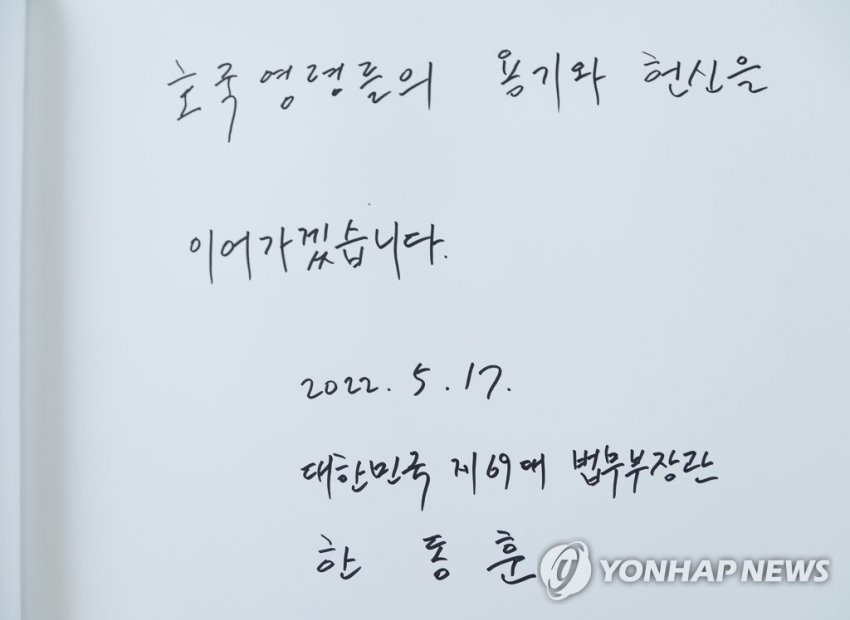 호국영령들의 용기와 헌신을
이어가겠습니다.
2022. 5. 17.
대한민국 제69대 법무부장관
한 동 훈
YONHAP NEWS